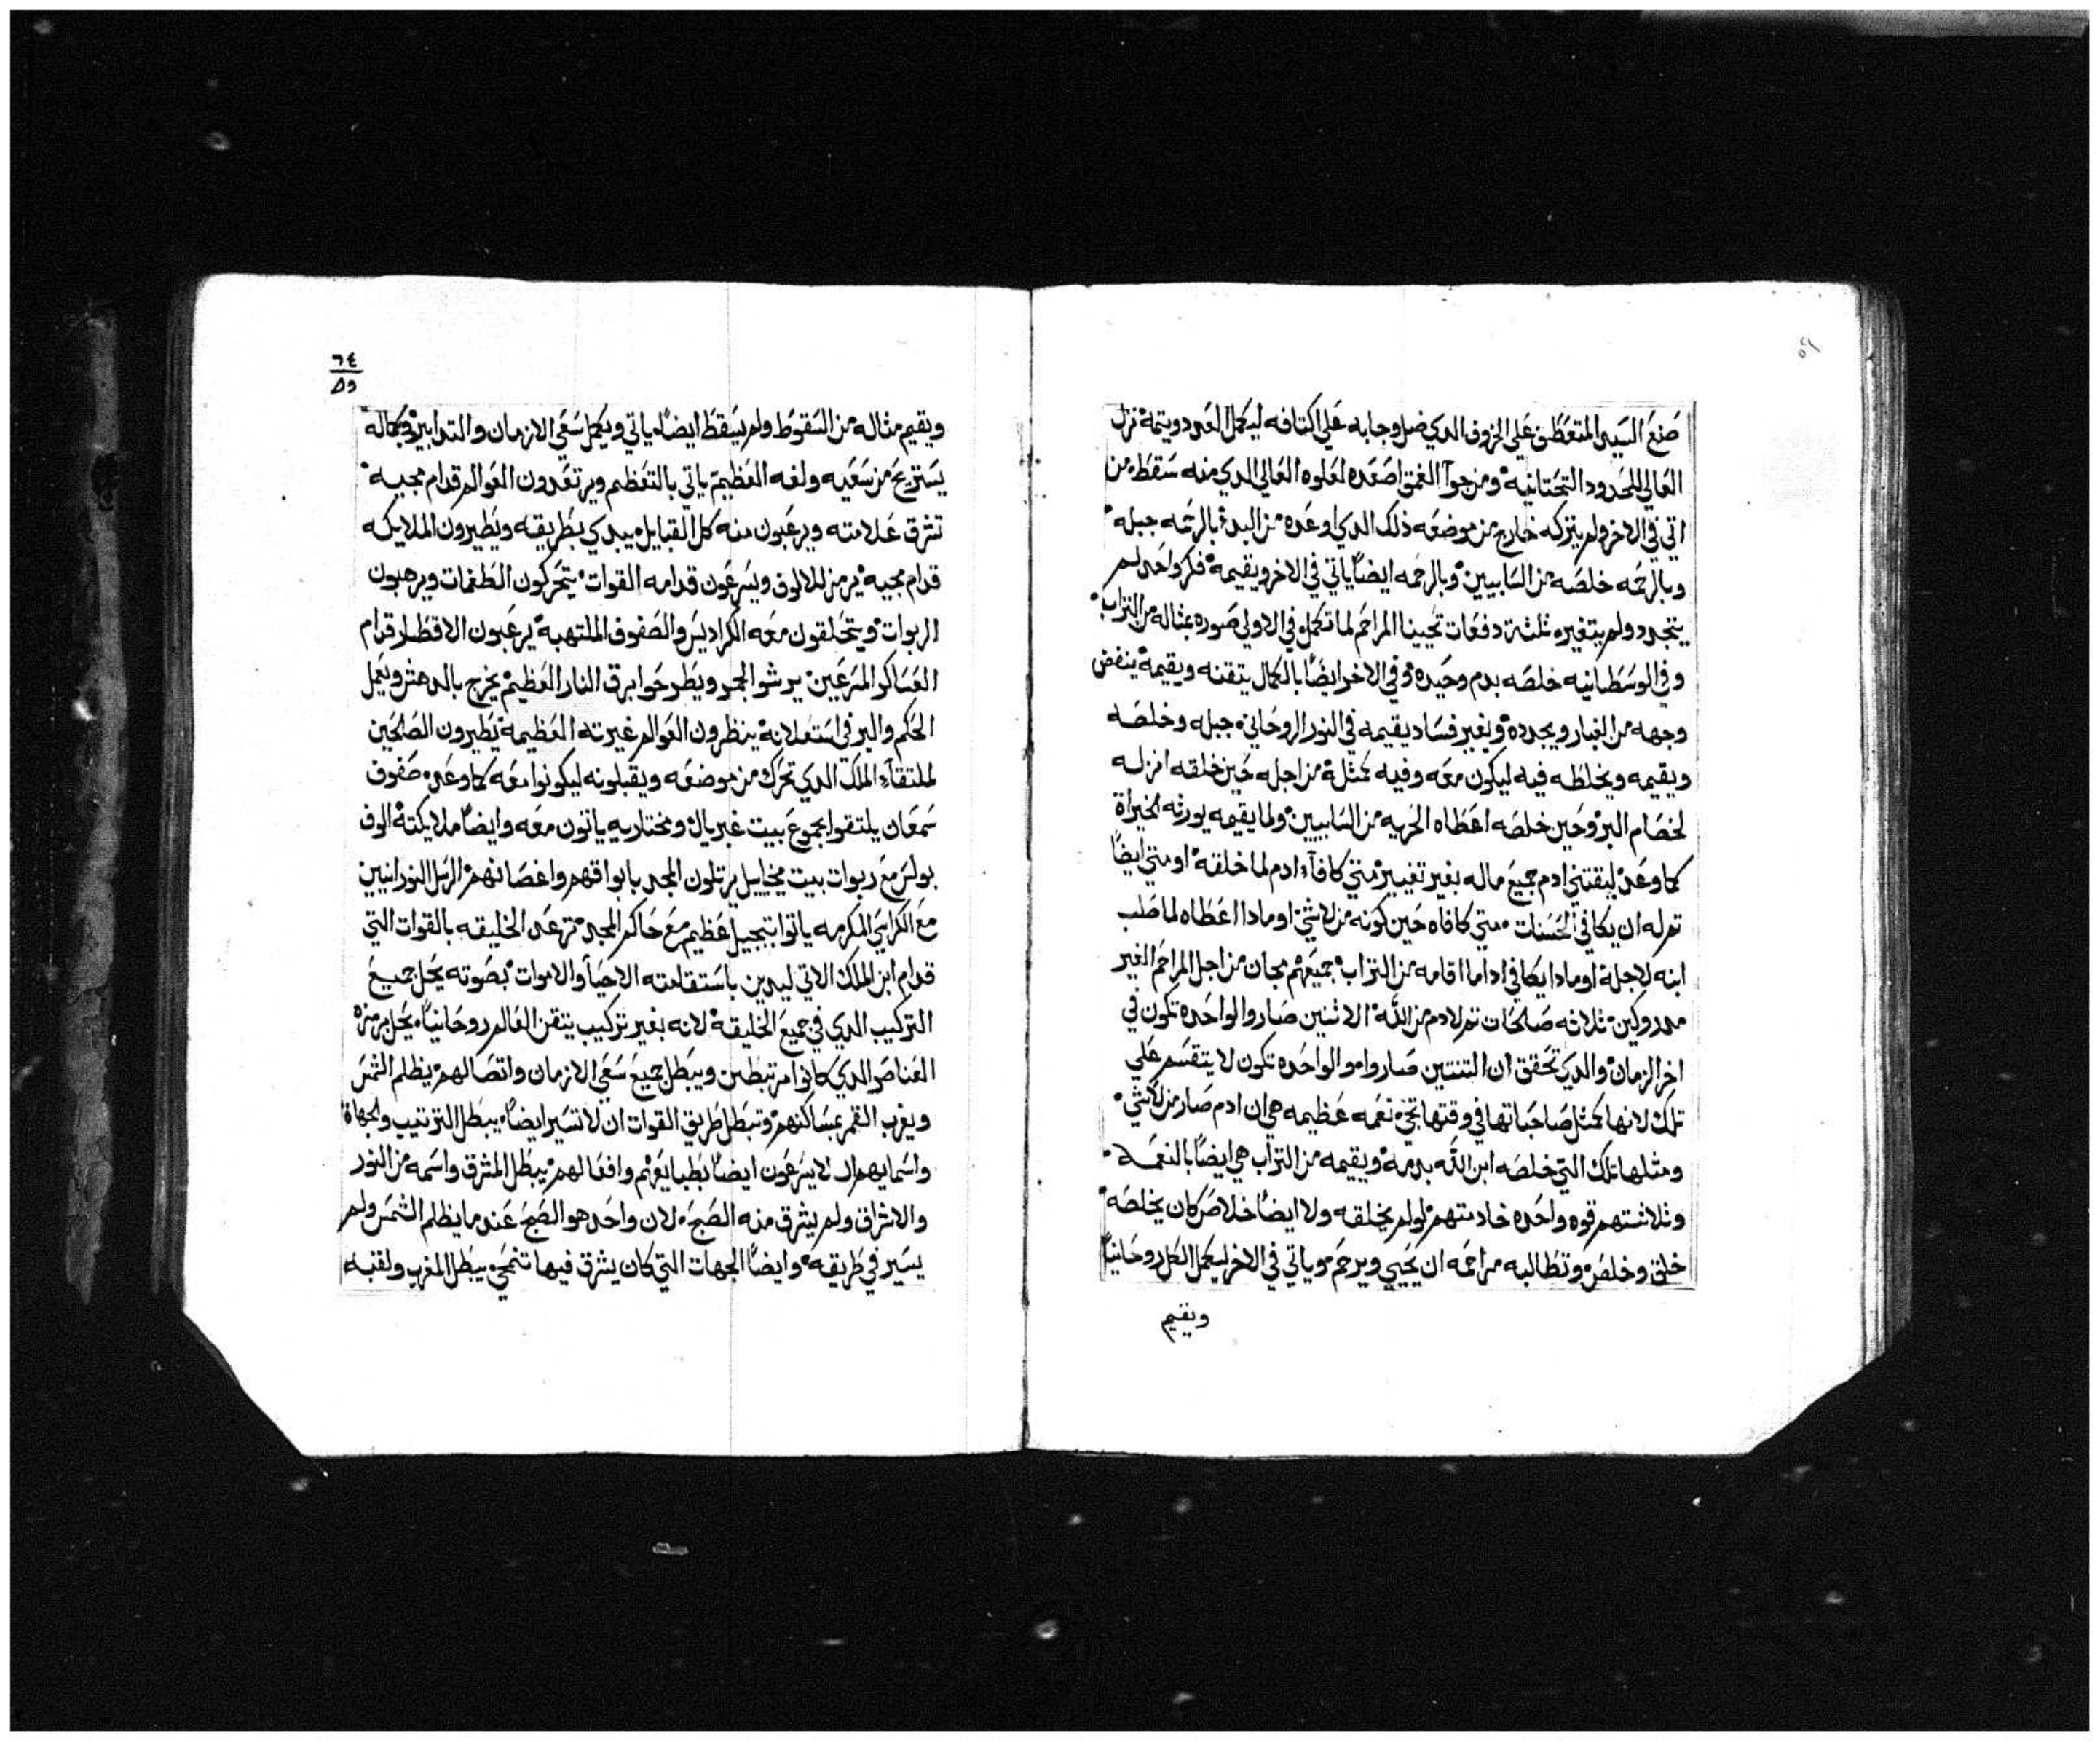 ٥٩
صنع السيد المتعطف علي الخروف الدي ضل وجابه علي اكتافه ليكمل العدد ويتمه نزل
العالي للحدود التحتانيه ومن جوا الغمق اصعده لعلوه العالي الدي منه سقط من
اتي في الاخر ولم يتركه خارج من موضعه ذلك الدي اوعده من البدء بالرحمه جبله
وبالرحمه خلصه من السابيين وبالرحمه ايضاً ياتي في الاخر ويقيمه فكر واحد لم
يتجدد ولم يتغير ثلثة دفعات تحيينا المراحم لما تكمل في الاولي صوره بمثاله من التراب
وفي الوسطانيه خلصه بدم وحيده وفي الاخر ايضاً بالكمال يتقنه ويقيمه ينفض
وجهه من الغبار ويجدده وبغير فساد يقيمه في النور الروحاني جبله وخلصه
ويقيمه ويخلطه فيه ليكون معه وفيه كمثله من اجله حين خلقه انزله
لخصام البر وحين خلصه اعطاه الحريه من السابيين ولما يقيمه يورثه الخيراة
كما وعد ليقتني ادم جميع ماله بغير تغيير متي كافاء ادم لما خلقه او متي ايضاً
تم له ان يكافي الحسنات متي كافاه حين كونه من لا شي او مادا اعطاه لما صلب
ابنه لاجله او مادا يكافي ادا ما اقامه من التراب جميعهم مجان من اجل المراحم الغير
مدروكين ثلاثه صالحات تم لادم من الله الاثنين صاروا والواحده تكون في
اخر الزمان والدي تحقق ان التنتين صاروا مو الواحده تكون لا يتقسم علي
تلك لانها كمثل صاحباتها في وقتها تجي نعمه عظيمه هي ان ادم صار من لا شي
ومثلها تلك التي خلصه ابن الله بدمه ويقيمه من التراب هي ايضاً بالنعمه
وثلاثتهم قوه واحده خادمتهم لو لم يخلقه ولا ايضاً خلاص كان يخلصه
خلق وخلص وتطالبه مراحمه ان يحيي ويرحم وياتي في الاخر ليكمل الكل روحانياً
ويقيم
٦٤
٥٩
ويقيم مثاله من السقوط ولم يسقط ايضاً ياتي ويكمل سعي الازمان والتدابير وبكماله
يستريح من سعيه ولفه العظيم ياتي بالتعظم ويرتعدون العوالم قدام مجيه
تشرق علامته ويرعبون منه كل القبايل يبدي بطريقه ويطيرون الملايكه
قدام مجيه يرمز للالوف ويسرعون قدامه القوات يتحركون الطغمات ويرهبون
الربوات ويتحلقون معه الكراديس والصفوف الملتهبه يرعبون الاقطار قدام
العساكر المسرعين يرشوا الجمر ويطرحوا برق النار العظيم يخرج بالدهش ويعمل
الحكم والبر في استعلانه ينظرون العوالم غيرته العظيمه يطيرون الصالحين
لملتقاء الملك الدي تحرك من موضعه ويقبلونه ليكونوا معه كما وعد صفوف
سمعان يلتقوا بجموع بيت غبريال ومختاريه ياتون معه وايضاً ملايكته الوف
بولس مع ربوات بيت ميخاييل يرتلون المجد بابواقهم واغصانهم الرسل النورانيين
مع الكراسي المكرمه ياتوا بتبجيل عظيم مع حاكم المجد ترعد الخليقه بالقوات التي
قدام ابن الملك الاتي ليدين باستقامته الاحيا والاموات بصوته يحل جميع
التركيب الدي في جميع الخليقه لانه بغير تركيب يتقن العالم روحانياً يحل برمزه
العناصر الدي كانوا مرتبطين ويبطل جميع سعي الازمان واتصالهم يظلم الشمس
ويغرب القمر بمساكنهم وتبطل طريق القوات ان لا تسير ايضاً يبطل الترتيب والجهاة
واسمايهم لا يسرعون ايضاً بطبايعهم وافعالهم يبطل المشرق واسمه من النور
والاشراق ولم يشرق منه الصبح لان واحد هو الصبح عندما يظلم الشمس ولم
يسير في طريقه وايضاً الجهات التي كان يشرق فيها تنمحي يبطل المغرب ولقبه